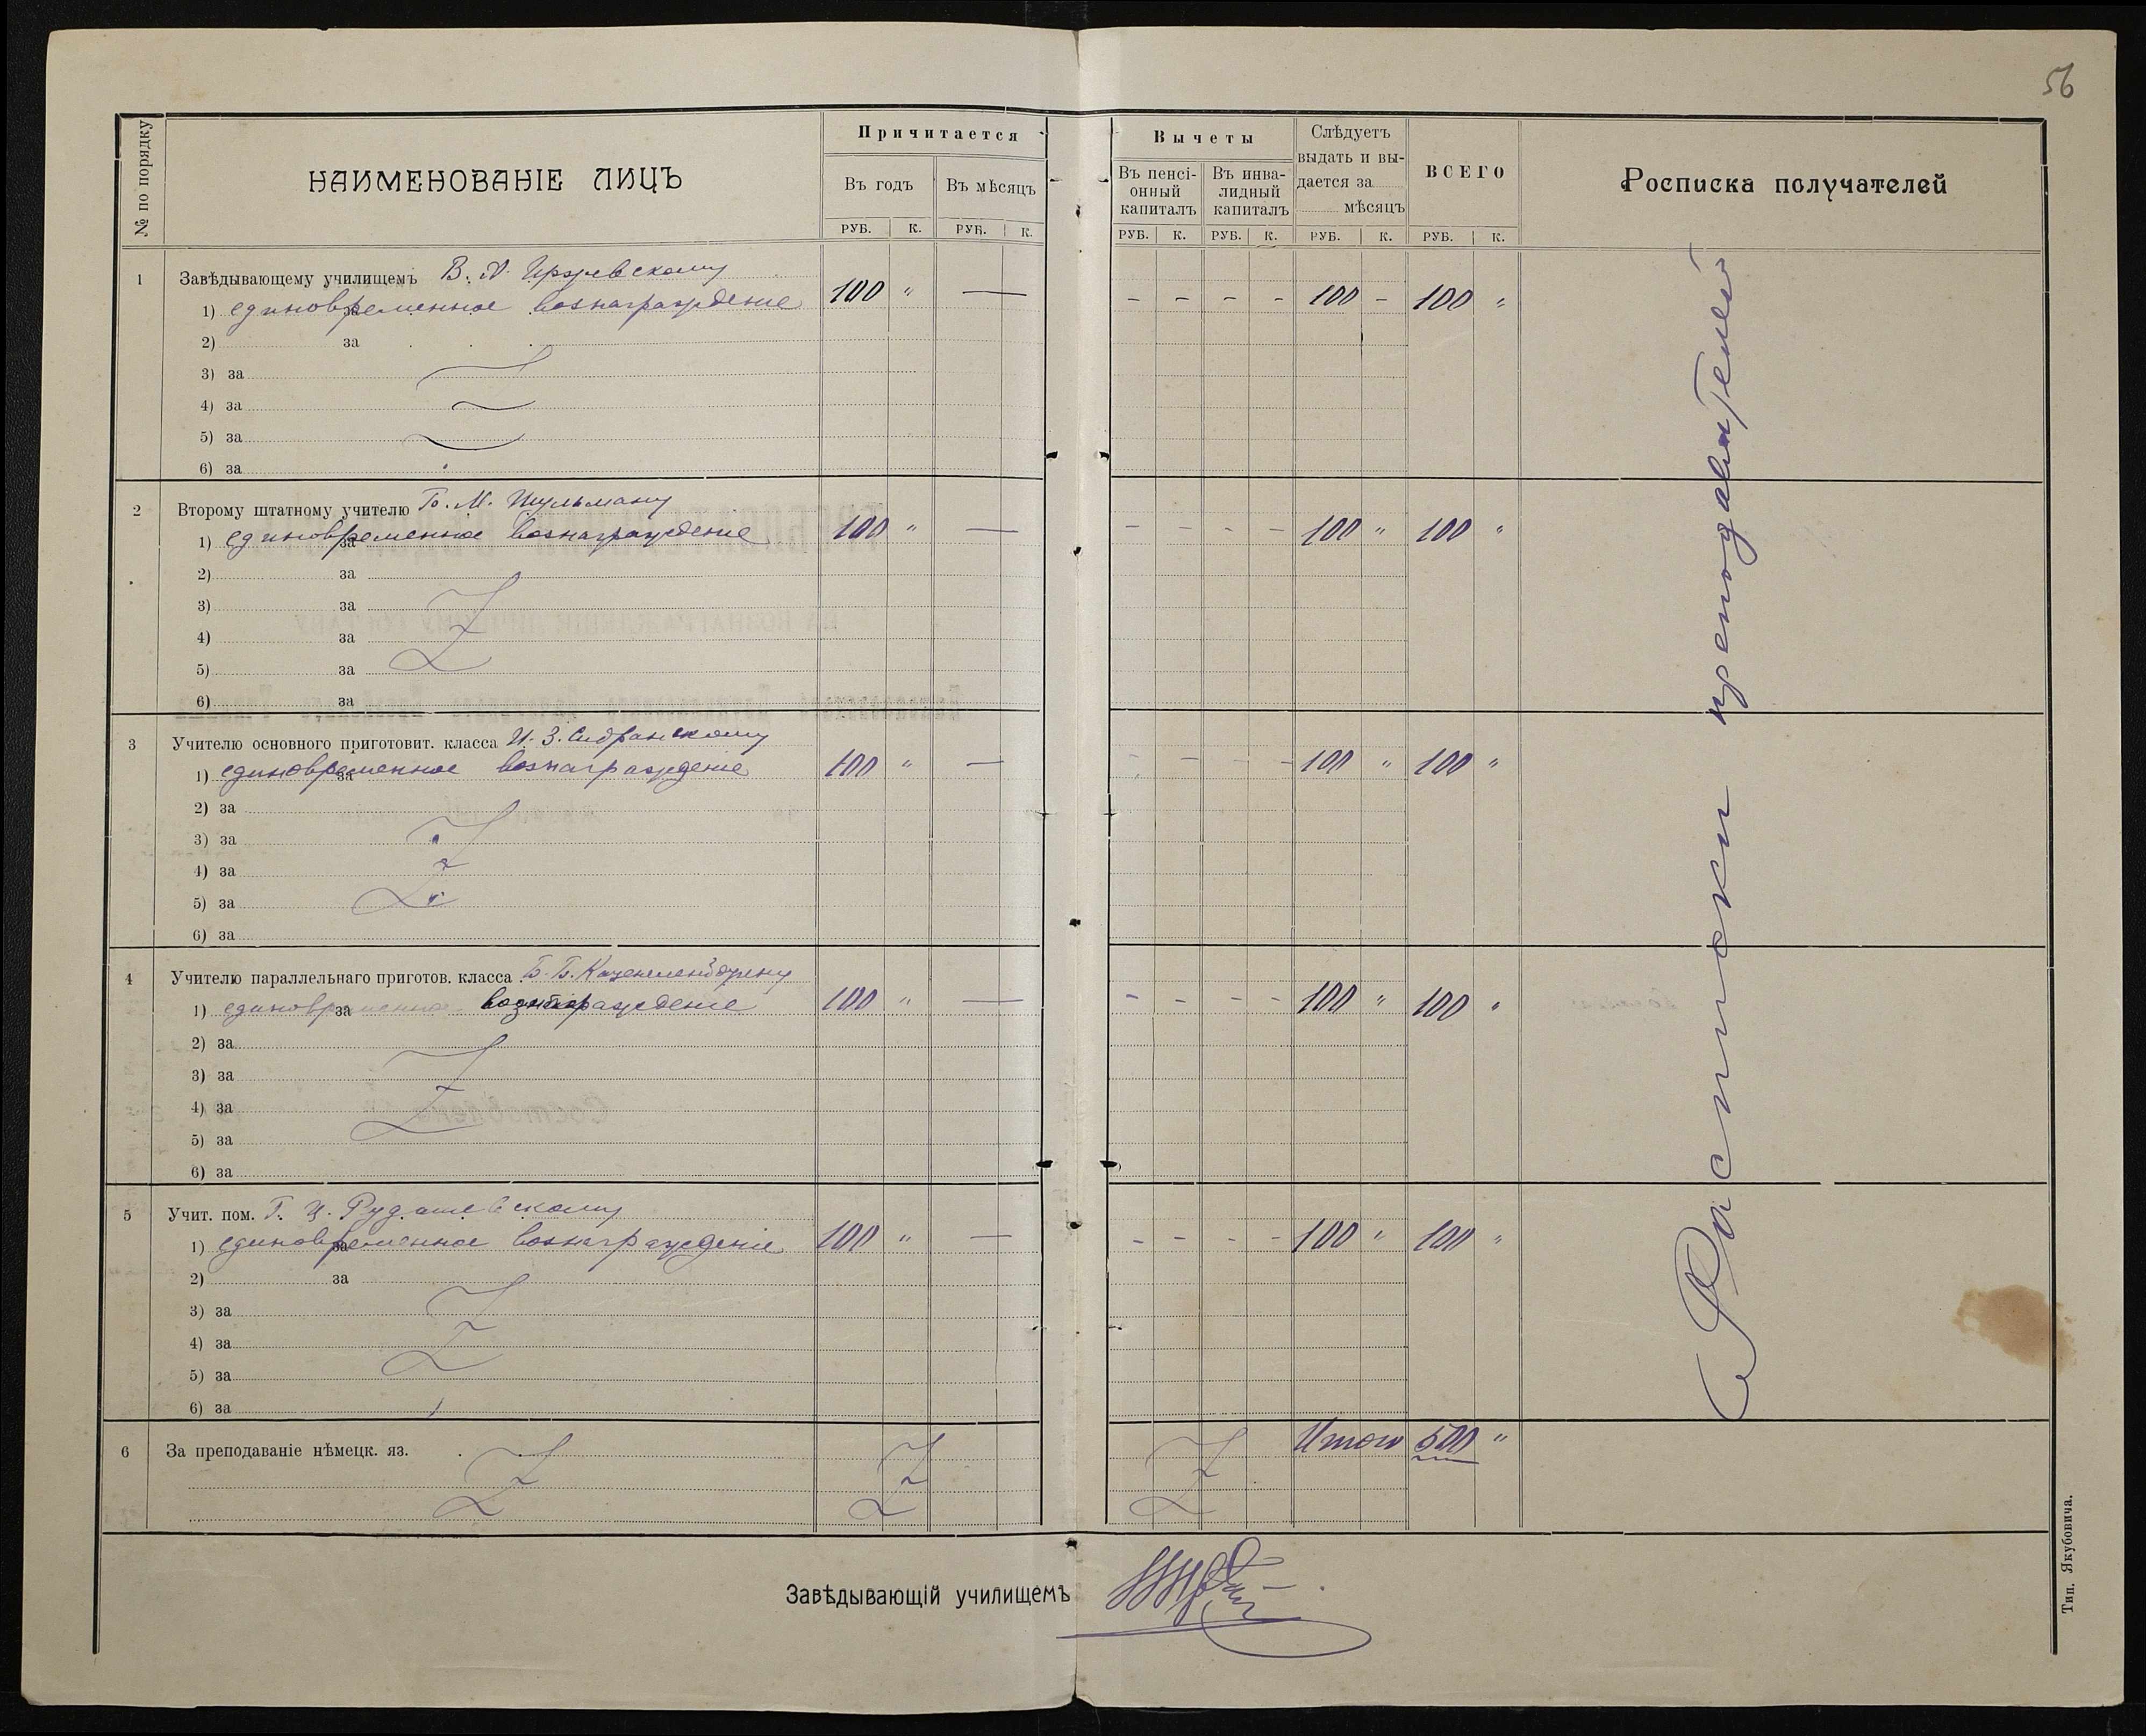 56
№ по порядку
НАИМЕНОВАНІЕ ЛИЦЪ
Причитается
Въ годъ
Въ мѣсяцъ
РУБ. К. РУБ. К.
Вычеты
Въ пенсі-
онный
капиталъ
Въ инва-
лидный
капиталъ
Слѣдуетъ
выдать и вы-
дается за
мѣсяцъ
ВСЕГО
Росписка получателей
РУБ. К. РУБ. К. РУБ. К. РУБ. К.
1 Завѣдывающему училищемъ В. А.
1) за единовременное вознагражденіе 100 " — - - - - 100 - 100 "
2) за
3) за
4) за
5) за
6) за
2 Второму штатному учителю Б. М. Шульману
1) за единовременное вознагражденіе 100 " — - - - - 100 " 100 "
2) за
3) за
4) за
5) за
6) за
3 Учителю основного приготовит. класса И. З. Сидранскому
1) за единовременное вознагражденіе 100 " — - - - - 100 " 100 "
2) за
3) за
4) за
5) за
6) за
4 Учителю параллельнаго приготов. класса Б. Б.
1) за единовременное вознагражденіе 100 " — - - - - 100 " 100 "
2) за
3) за
4) за
5) за
6) за
5 Учит. пом. Г. Ц. Рудашевскому
1) за единовременное вознагражденіе 100 " — - - - - 100 " 100 "
2) за
3) за
4) за
5) за
6) за
6 За преподаваніе нѣмецк. яз.
Итого 500 "
Расписки преподавателей
Завѣдывающій училищемъ
Тип. Якубовича.